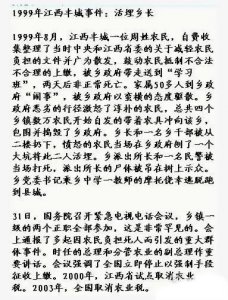 1999年江西丰城事件：活埋乡长
1999年8月，江西丰城一位周姓农民，自费收
集整理了当时中央和江西省委的关于减轻农民
负担的文件并广为散发，鼓动农民抵制不合法
不合理的上缴，被乡政府带走送到“学习
班”，两天后非正常死亡。家属50多人到乡政
府“闹事”，被乡政府以蛮横的态度驱散。乡
政府恶劣的行径激怒了淳朴的农民，总共四个
镇数万农民开始自发的带着农具冲向该乡，
包围并捣毁了乡政府。乡长和一名乡干部被从
二楼扔下，愤怒的农民当场在乡政府侧了一个
大坑将此二人活埋。乡派出所长和一名民警被
当场打死，派出所长的尸体被吊在树上示众。
乡党委书记乘乡中学一教师的摩托侥幸逃脱跑
到县城。
31日，国务院召开紧急电视电话会议，乡镇一
级的两个正职全部参加，这是非常罕见的。会
上通报了多起因农民负担死人而引发的重大群
体事件。时任的总理和分管农业的副总理作重
要讲话。会议强调了全国立即停止以强制手段
征收上缴。2000年，江西省试点取消农业
税。2003年，全国取消农业税。